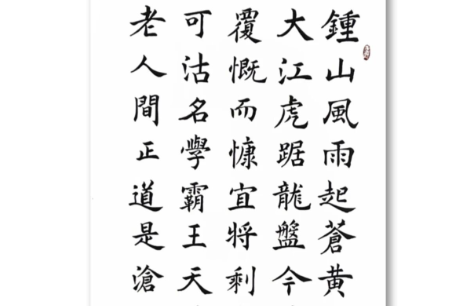 鍾山風雨起蒼黃
大江虎踞龍盤今
覆慨而慷宜將剩
可沽名學霸王天
老人間正道是滄